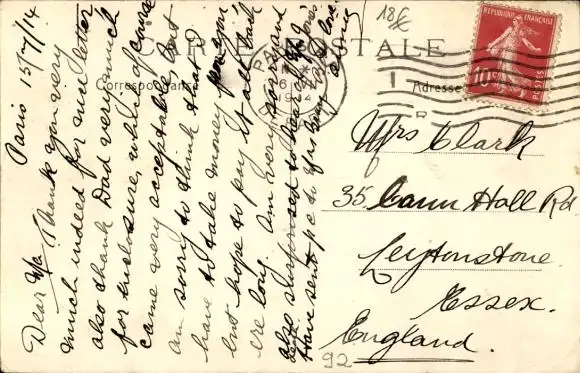 CARTE POSTALE
Correspondance
Adresse
RÉPUBLIQUE FRANÇAISE
10c
POSTES
18f
Paris 15/7/14
Dear Ma, Thank you very
much indeed for nice letter
also thank Dad very much
for enclosure, which of course
came very acceptable, but
am sorry to think that I
have to take money from you
but hope to pay it all back
ere long. Am very sorry and
also surprised to hear of
Have sent p.c to Mrs
love
Mrs Clark
35 Cann Hall Rd
Leytonstone
Essex.
England.
92